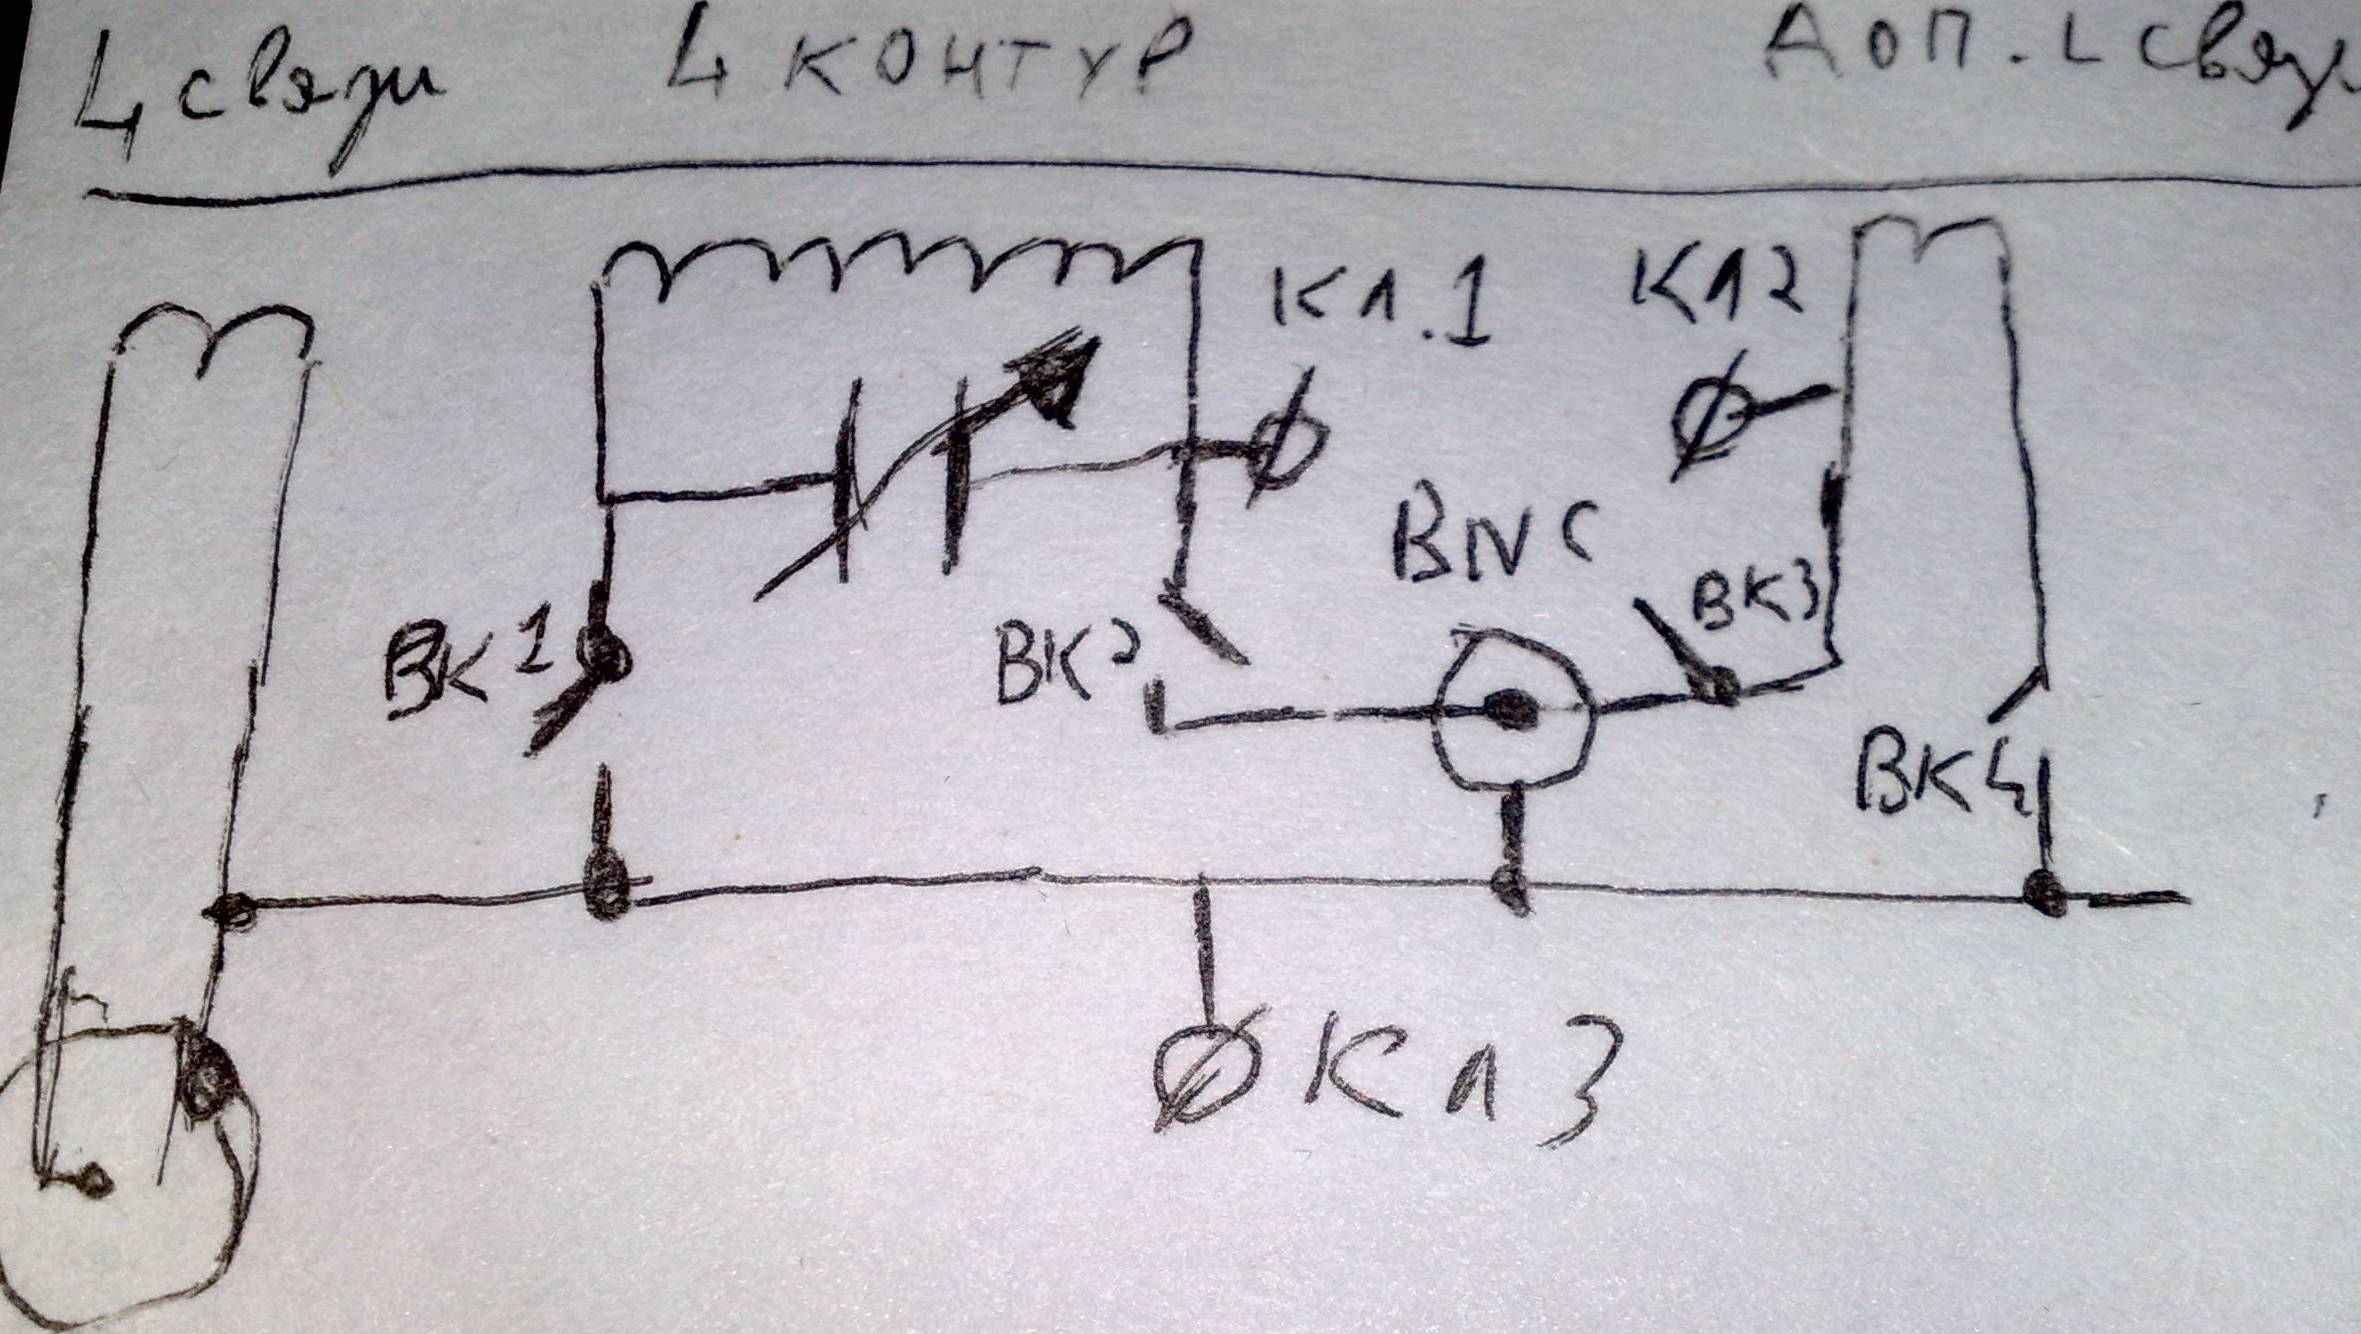 L связи L контур доп. L связи
Кл.1 Кл2
BNC
ВК1 ВК2 ВК3
ВК4
Кл3